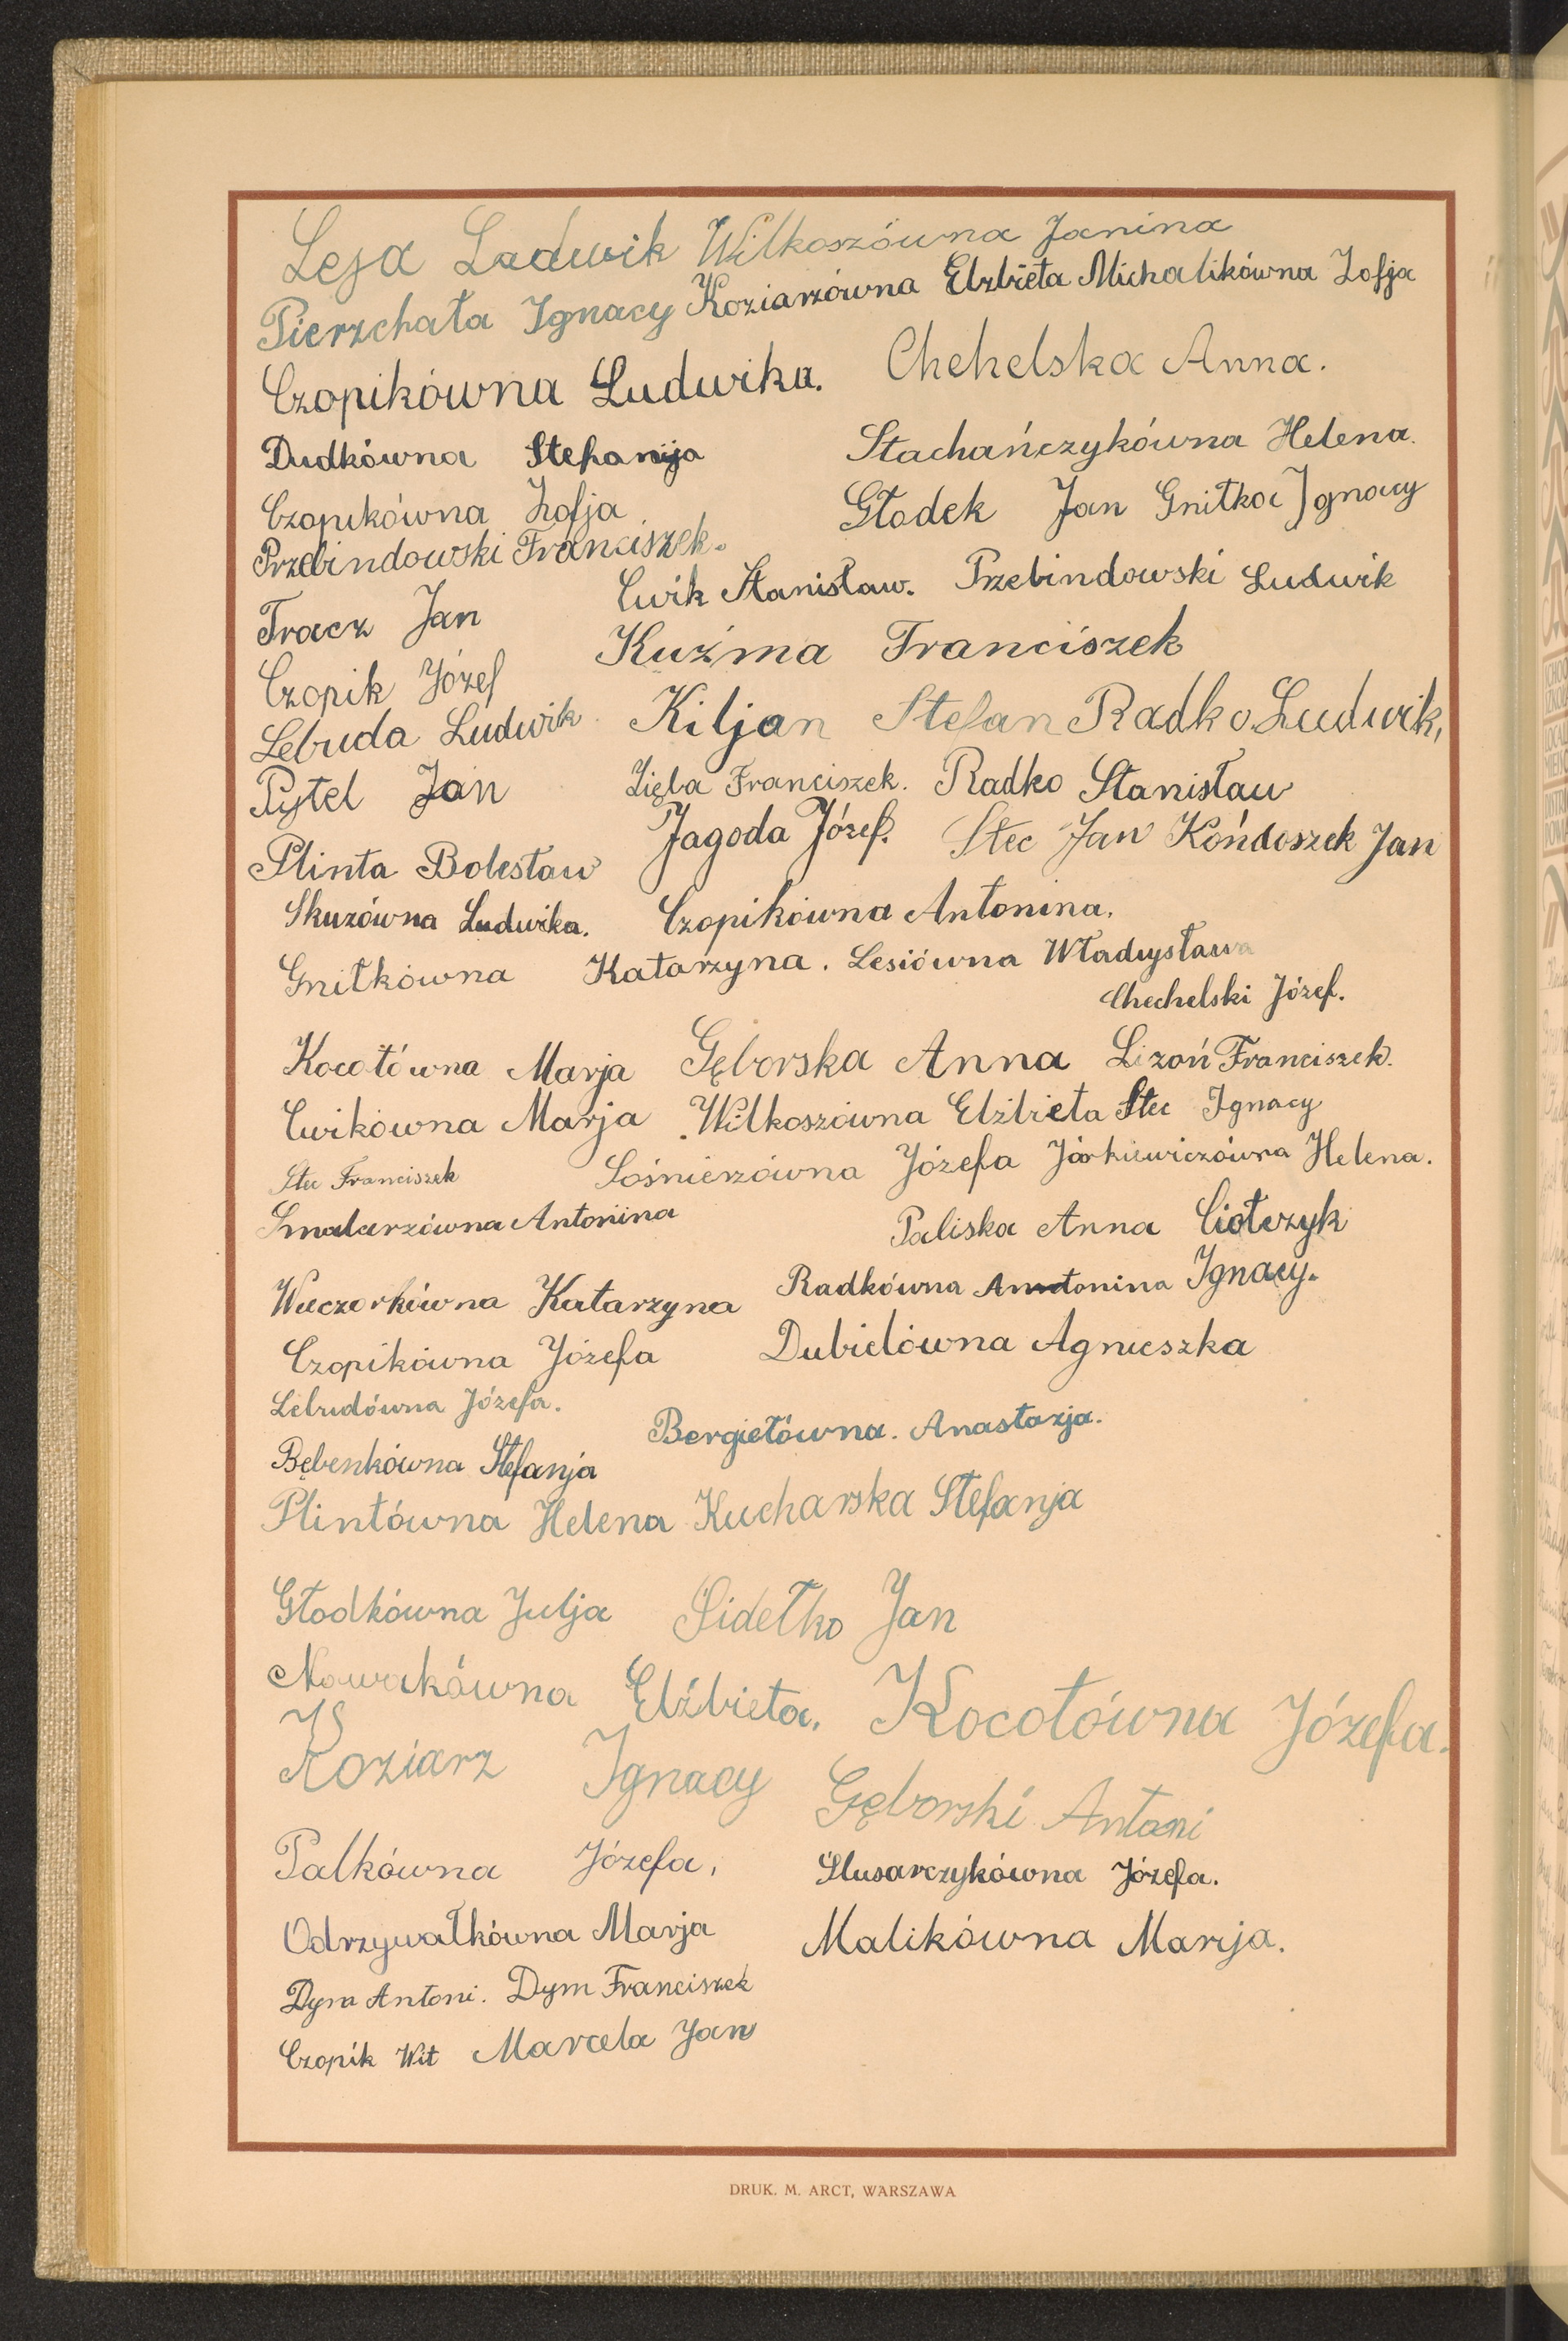 Leja Ludwik Wilkoszówna Janina
Pierzchała Ignacy Koziarzówna Elzbieta Michalikówna Zofja
Czopikówna Ludwika. Chehelska Anna.
Dudkówna Stefanja Stachańczykówna Helena.
Czopikówna Zofja Głodek Jan Gnitka Ignacy
Przebindowski Franciszek.
Cwik Stanisław. Przebindowski Ludwik
Tracz Jan Kuźma Franciszek
Czopik Józef
Lebruda Ludwik Kiljan Stefan Radko Ludwik,
Pytel Jan Zięba Franciszek. Radko Stanisław
Jagoda Józef. Stec Jan Końdoszek Jan
Plinta Bolesław
Skuzówna Ludwika. Czopikówna Antonina.
Gnitkówna Katarzyna. Lesiówna Władysława
Chechelski Józef.
Kocołówna Marja Gęborska Anna Lizoń Franciszek.
Cwikówna Marja Wilkoszówna Elżbieta Stec Ignacy
Stec Franciszek Sośnierzówna Józefa Járkiewiczówna Helena.
Smalarzówna Antonina Paliska Anna Ciołczyk
Wieczorkówna Katarzyna Radkówna Antonina Ignacy.
Czopikówna Józefa Dubielówna Agnieszka
Lebrudówna Józefa.
Bergiełówna. Anastazja.
Bębenkówna Stefanja
Plintówna Helena Kucharska Stefanja
Głodkówna Julja Sidełko Jan
Nowakówna Elżbieta. Kocołówna Józefa.
Koziarz Ignacy Gęborski Antoni
Palkówna Józefa, Ślusarczykówna Józefa.
Odrzywałkówna Marja Malikówna Marja.
Dym Antoni. Dym Franciszek
Czopik Wit Marcela Jan
DRUK. M. ARCT, WARSZAWA